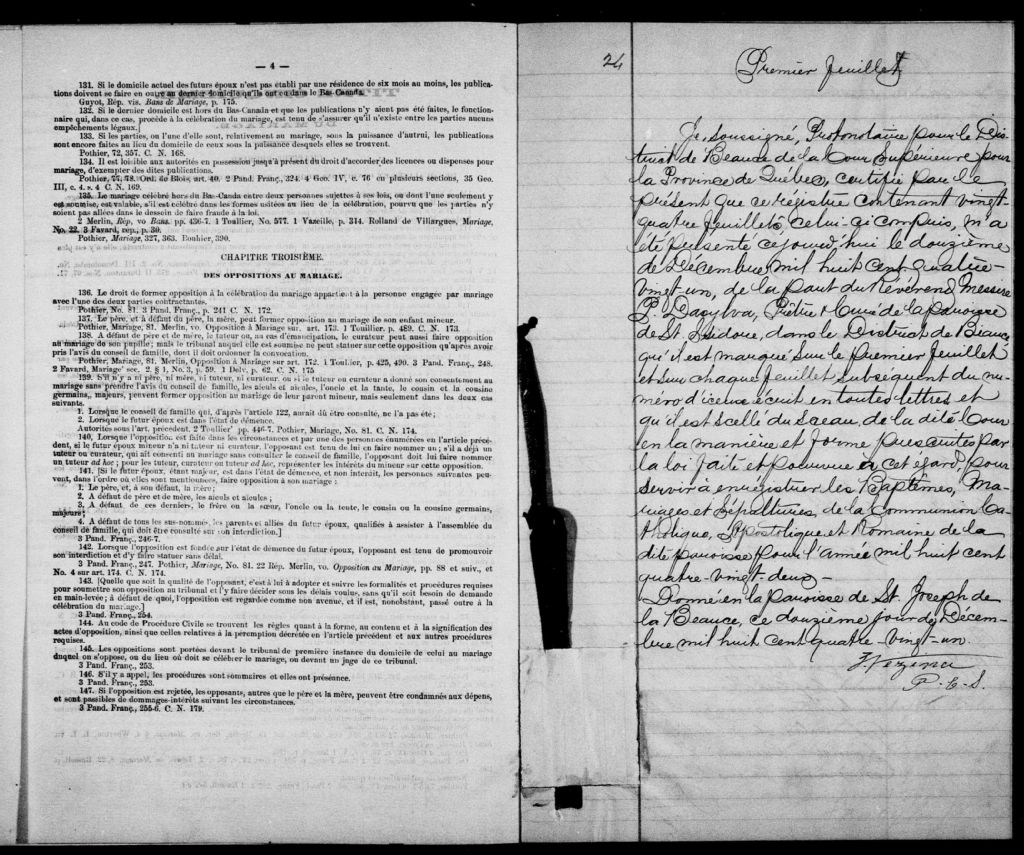 — 4 —
131. Si le domicile actuel des futurs époux n'est pas établi par une résidence de six mois au moins, les publica-
tions doivent se faire en outre au dernier domicile qu'ils ont eu dans le Bas-Canada.
Guyot, Rép. vis. Bans de Mariage, p. 175.
132. Si le dernier domicile est hors du Bas-Canada et que les publications n'y aient pas été faites, le fonction-
naire qui, dans ce cas, procède à la célébration du mariage, est tenu de s'assurer qu'il n'existe entre les parties aucuns
empêchements légaux.]
133. Si les parties, ou l'une d'elle sont, relativement au mariage, sous la puissance d'autrui, les publications
sont encore faites au lieu du domicile de ceux sous la puissance desquels elles se trouvent.
Pothier, 72, 357. C. N. 168.
134. Il est loisible aux autorités en possession jusqu'à présent du droit d'accorder des licences ou dispenses pour
mariage, d'exempter des dites publications.
Pothier, 77, 78. Ord. de Blois, art. 40. 2 Pand. Franç., 324. 4 Geo. IV, c. 76 en plusieurs sections, 35 Geo.
III, c. 4. s. 4 C. N. 169.
135. Le mariage célébré hors du Bas-Canda entre deux personnes sujettes à ses lois, ou dont l'une seulement y
est soumise, est valable, s'il est célébré dans les formes usitées au lieu de la célébration, pourvu que les parties n'y
soient pas allées dans le dessein de faire fraude à la loi.
2 Merlin, Rép, vo Bans. pp. 436-7. 1 Toullier, No. 577. 1 Vazeille, p. 314. Rolland de Villargues, Mariage,
No. 22. 3 Favard, rep., p. 30.
Pothier, Mariage, 327, 363. Bouhier, 390.
CHAPITRE TROISIÈME.
DES OPPOSITIONS AU MARIAGE.
136. Le droit de former opposition à la célébration du mariage appartient à la personne engagée par mariage
avec l'une des deux parties contractantes.
Pothier, No. 81. 3 Pand. Franç., p. 241 C. N. 172.
137. Le père, et à défaut du père, la mère, peut former opposition au mariage de son enfant mineur.
Pothier, Mariage, 81. Merlin, vo. Opposition à Mariage sur. art. 173. 1 Touillier, p. 489. C. N. 173.
138. A défaut de père et de mère, le tuteur ou, au cas d'émancipation, le curateur peut aussi faire opposition
au mariage de son pupille; mais le tribunal auquel elle est soumise ne peut statuer sur cette opposition qu'après avoir
pris l'avis du conseil de famille, dont il doit ordonner la convocation.
Pothier, Mariage, 81. Merlin, Opposition à Mariage sur art. 172. 1 Toullier, p. 425, 490. 3 Pand. Franç., 248.
2 Favard, Mariage sec. 2. § 1, No. 3, p. 59. 1 Delv. p. 62. C. N. 175
139. S'il n'y a ni père, ni mère, ni tuteur, ni curateur, ou si le tuteur ou curateur a donné son consentement au
mariage sans prendre l'avis du conseil de famille, les aïeuls et aïeules, l'oncle et la tante, le cousin et la cousine
germains, majeurs, peuvent former opposition au mariage de leur parent mineur, mais seulement dans les deux cas
suivants.
1. Lorsque le conseil de famille qui, d'après l'article 122, aurait dû être consulté, ne l'a pas été;
2. Lorsque le futur époux est dans l'état de démence.
Autorités sous l'art. précédent. 2 Toullier pp. 446-7. Pothier, Mariage, No. 81. C. N. 174.
140, Lorsque l'opposition est faite dans les circonstances et par une des personnes énumérées en l'article précé-
dent, si le futur époux mineur n'a ni tuteur ni curateur, l'opposant est tenu de lui en faire nommer un; s'il a déjà un
tuteur ou curateur, qui ait consenti au mariage sans consulter le conseil de famille, l'opposant doit lui faire nommer
un tuteur ad hoc; pour les, tuteur, curateur ou tuteur ad hoc, représenter les intérêts du mineur sur cette opposition.
141. [Si le futur époux, étant majeur, est dans l'état de démence, et non interdit, les personnes suivantes peu-
vent, dans l'ordre où elles sont mentionnées, faire opposition à son mariage:
1. Le père, et, à son défaut, la mère;
2. A défaut de père et de mère, les aïeuls et aïeules;
3. A défaut de ces derniers, le frère ou la sœur, l'oncle ou la tente, le cousin ou la cousine germains,
majeurs;
4. A défaut de tous les sus-nommés, les parents et alliés du futur époux, qualifiés à assister à l'assemblée du
conseil de famille, qui doit être consulté sur son interdiction.]
3 Pand. Franç., 246-7.
142. Lorsque l'opposition est fondée sur l'état de démence du futur époux, l'opposant est tenu de promouvoir
son interdiction et d'y faire statuer sans délai.
3 Pand. Franç., 247. Pothier, Mariage, No. 81. 22 Rép. Merlin, vo. Opposition au Mariage, pp. 88 et suiv., et
No. 4 sur art. 174. C. N. 174.
143. [Quelle que soit la qualité de l'opposant, c'est à lui à adopter et suivre les formalités et procédures requises
pour soumettre son opposition au tribunal et l'y faire décider sous les délais voulus, sans qu'il soit besoin de demande
en main-levée; à défaut de quoi, l'opposition est regardée comme non avenue, et il est, nonobstant, passé outre à la
célébration du mariage.]
3 Pand. Franç., 254.
144. Au code de Procédure Civile se trouvent les règles quant à la forme, au contenu et à la signification des
actes d'opposition, ainsi que celles relatives à la péremption décrétée en l'article précédent et aux autres procédures
requises.
145. Les oppositions sont portées devant le tribunal de première instance du domicile de celui au mariage
duquel on s'oppose, ou du lieu où doit se célébrer le mariage, ou devant un juge de ce tribunal.
3 Pand. Franç., 253.
146. S'il y a appel, les procédures sont sommaires et elles ont présénce.
3 Pand. Franç., 253.
147. Si l'opposition est rejetée, les opposants, autres que le père et la mère, peuvent être condamnés aux dépens,
et sont passibles de dommages-intérêts suivant les circonstances.
3 Pand. Franç., 255-6. C. N. 179.
24
Premier feuillet
Je, soussigné, Protonotaire pour le Dis-
trict de Beauce de la Cour Supérieure pour
la Province de Québec, certifie par le
présent que ce régistre contenant vingt-
quatre feuillets, celui-ci compris, m'a
été présenté ce jourd'hui le douzième
de Décembre mil huit cent quatre-
vingt-un, de la part du Révérend Messire
P. Dagylva, Prêtre & Curé de la paroisse
de St. Isidore, dans le District de Beauce,
qu'il est marqué sur le premier feuillet
et sur chaque feuillet subséquent du nu-
méro d'icelui écrit en toutes lettres et
qu'il est scellé du sceau de la dite Cour
en la manière et forme prescrites par
la loi faite et pourvue à cet égard, pour
servir à enrégistrer les Baptêmes, Ma-
riages et Sépultures de la Communion Ca-
tholique, Apostolique et Romaine de la
dite paroisse pour l'année mil huit cent
quatre-vingt-deux –
Donné en la paroisse de St. Joseph de
la Beauce, ce douzième jour de Décem-
bre mil huit cent quatre-vingt-un.
J. Vézina
P. C. S.